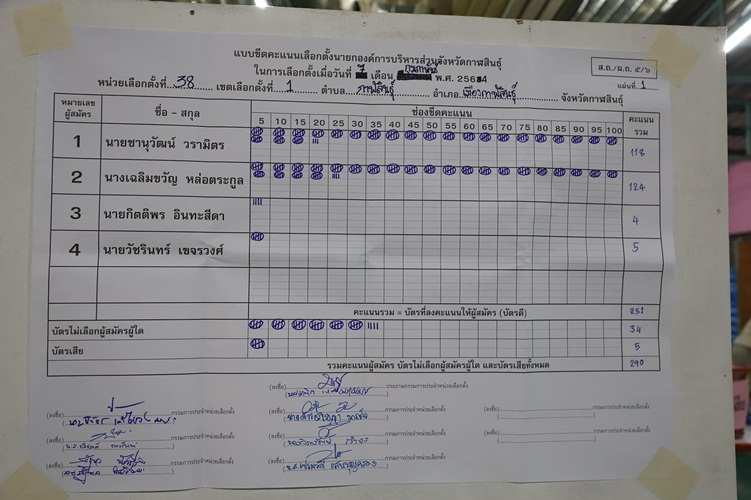 แบบขีดคะแนนเลือกตั้งนายกองค์การบริหารส่วนจังหวัดกาฬสินธุ์
ส.ถ./ผ.ถ. ๕/๖
ในการเลือกตั้งเมื่อวันที่ 1 เดือน กุมภาพันธ์ พ.ศ. 2568
แผ่นที่ 1
หน่วยเลือกตั้งที่ 38 เขตเลือกตั้งที่ 1 ตำบล กาฬสินธุ์ อำเภอ เมืองกาฬสินธุ์ จังหวัดกาฬสินธุ์
หมายเลขผู้สมัคร ชื่อ - สกุล ช่องขีดคะแนน คะแนนรวม
5 10 15 20 25 30 35 40 45 50 55 60 65 70 75 80 85 90 95 100
1 นายชานุวัฒน์ วรามิตร 118
2 นางเฉลิมขวัญ หล่อตระกูล 124
3 นายกิตติพร อินทะสีดา 4
4 นายวัชรินทร์ เขจรวงศ์ 5
คะแนนรวม = บัตรที่ลงคะแนนให้ผู้สมัคร (บัตรดี) 251
บัตรไม่เลือกผู้สมัครผู้ใด 34
บัตรเสีย 5
รวมคะแนนผู้สมัคร บัตรไม่เลือกผู้สมัครผู้ใด และบัตรเสียทั้งหมด 290
(ลงชื่อ) ประธานกรรมการประจำหน่วยเลือกตั้ง
(ลงชื่อ) กรรมการประจำหน่วยเลือกตั้ง (ลงชื่อ) กรรมการประจำหน่วยเลือกตั้ง (ลงชื่อ) กรรมการประจำหน่วยเลือกตั้ง
(ลงชื่อ) กรรมการประจำหน่วยเลือกตั้ง (ลงชื่อ) กรรมการประจำหน่วยเลือกตั้ง (ลงชื่อ) กรรมการประจำหน่วยเลือกตั้ง
(ลงชื่อ) กรรมการประจำหน่วยเลือกตั้ง (ลงชื่อ) กรรมการประจำหน่วยเลือกตั้ง